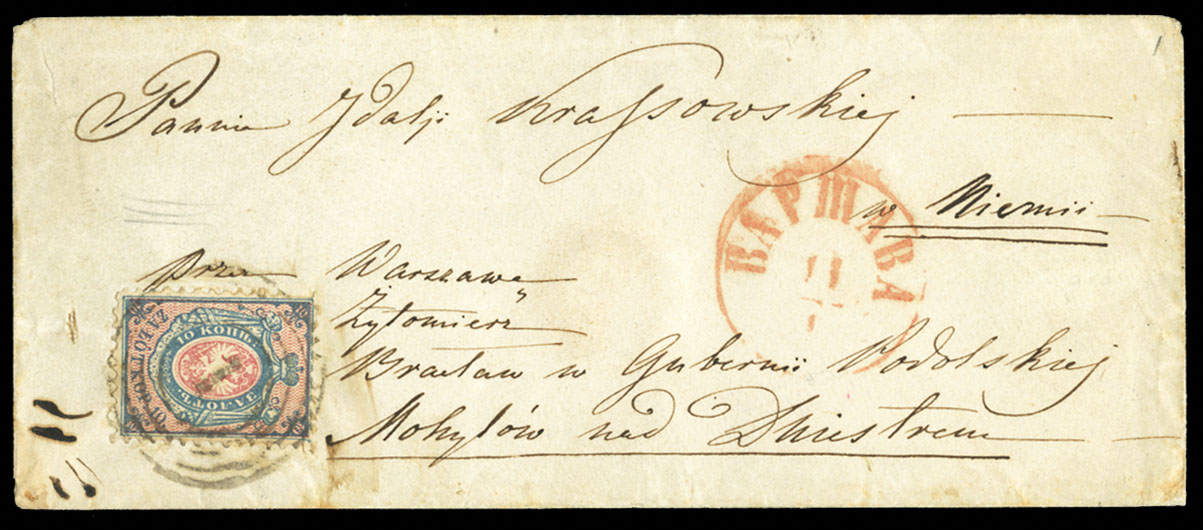 Pannie Idalji Krassowskiej
w Niemii
przez Warszawę
Żytomierz
Bracław w Gubernii Podolskiej
Mohylów nad Dniestrem
ВАРШАВА
11
10 КОПѢ.
ЗА ЛОТЪ
ЗА ЛОТЪ КОП